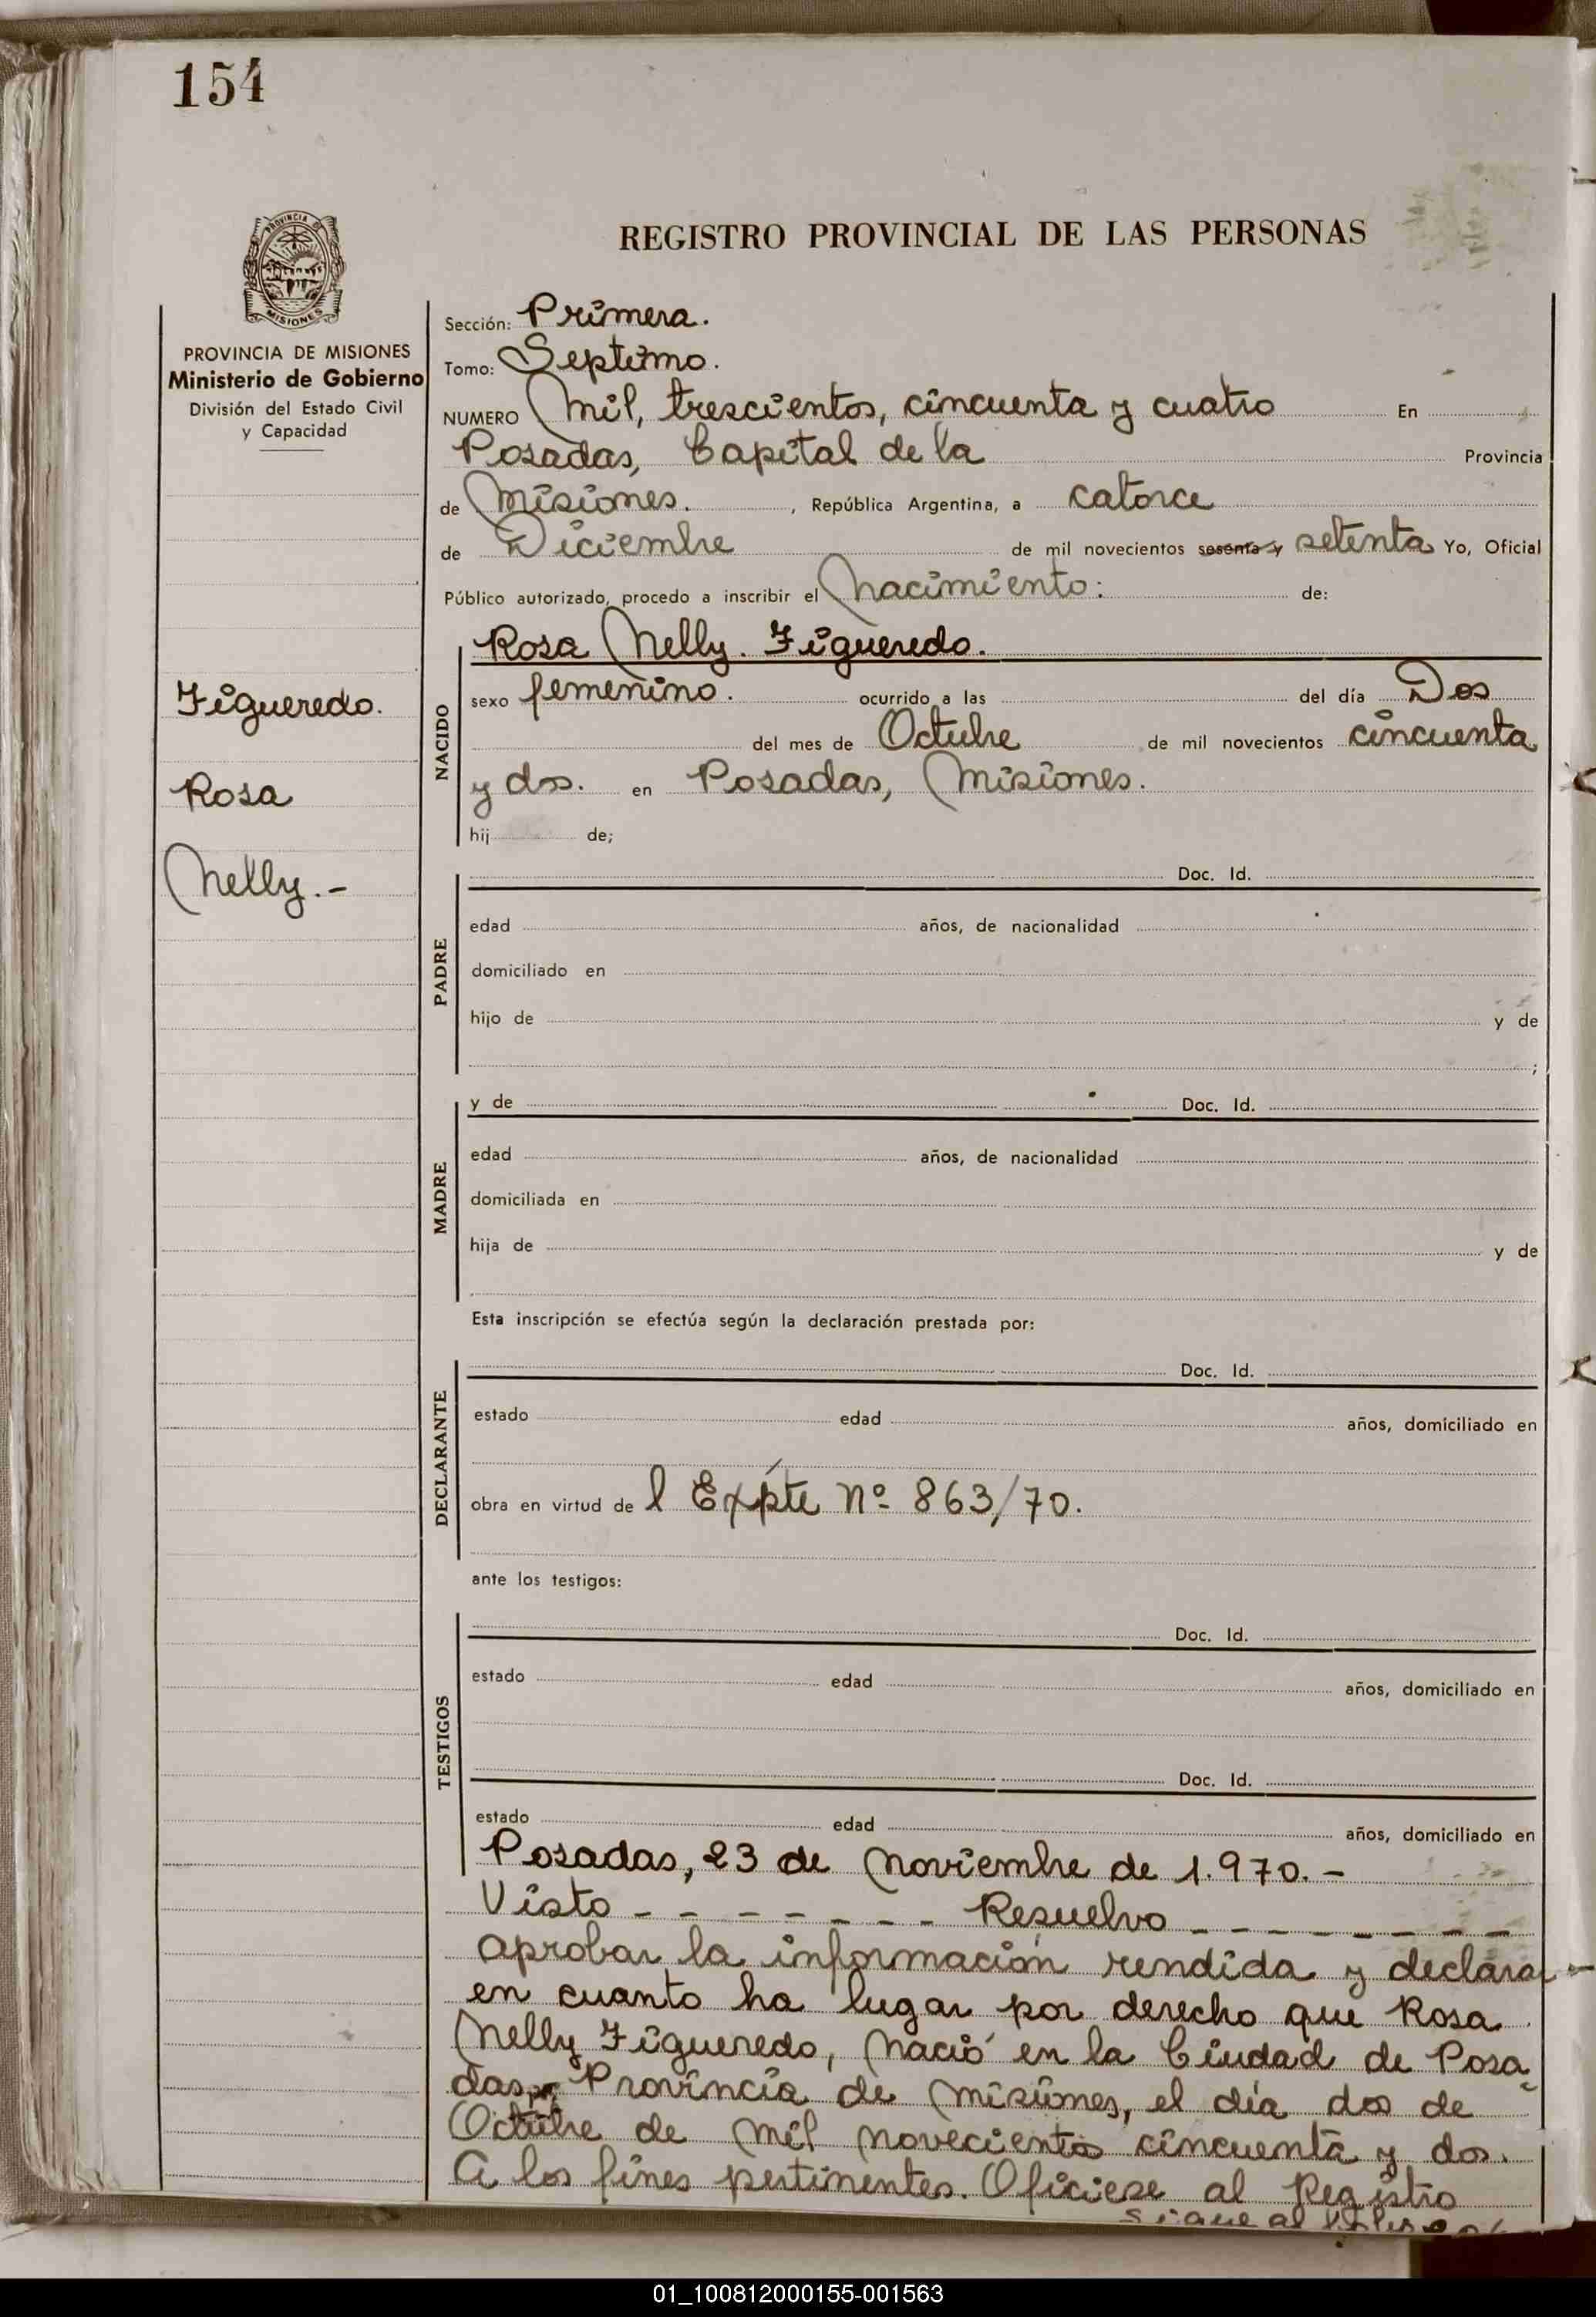 154
PROVINCIA
MISIONES
PROVINCIA DE MISIONES
Ministerio de Gobierno
División del Estado Civil
y Capacidad
Figueredo.
Rosa
Nelly.-
REGISTRO PROVINCIAL DE LAS PERSONAS
Sección: Primera.
Tomo: Septimo.
NUMERO Mil, trescientos, cincuenta y cuatro En
Posadas, Capital de la Provincia
de Misiones. , República Argentina, a catorce
de Diciembre de mil novecientos sesenta y setenta Yo, Oficial
Público autorizado, procedo a inscribir el Nacimiento: de:
NACIDO
Rosa Nelly. Figueredo.
sexo femenino. ocurrido a las del día Dos
del mes de Octubre de mil novecientos cincuenta
y dos. en Posadas, Misiones.
hij de;
PADRE
Doc. Id.
edad años, de nacionalidad
domiciliado en
hijo de y de
;
MADRE
y de Doc. Id.
edad años, de nacionalidad
domiciliada en
hija de y de
Esta inscripción se efectúa según la declaración prestada por:
DECLARANTE
Doc. Id.
estado edad años, domiciliado en
obra en virtud de l Expte Nº 863/70.
ante los testigos:
TESTIGOS
Doc. Id.
estado edad años, domiciliado en
Doc. Id.
estado edad años, domiciliado en
Posadas, 23 de Noviembre de 1.970.-
Visto - - - - - - - Resuelvo - - - - - - - -
aprobar la información rendida y declarar
en cuanto ha lugar por derecho que Rosa
Nelly Figueredo, Nació en la Ciudad de Posa
das, Provincia de Misiones, el día dos de
Octubre de Mil Novecientos cincuenta y dos.
A los fines pertinentes. Ofíciese al Registro
sigue al
01_100812000155-001563